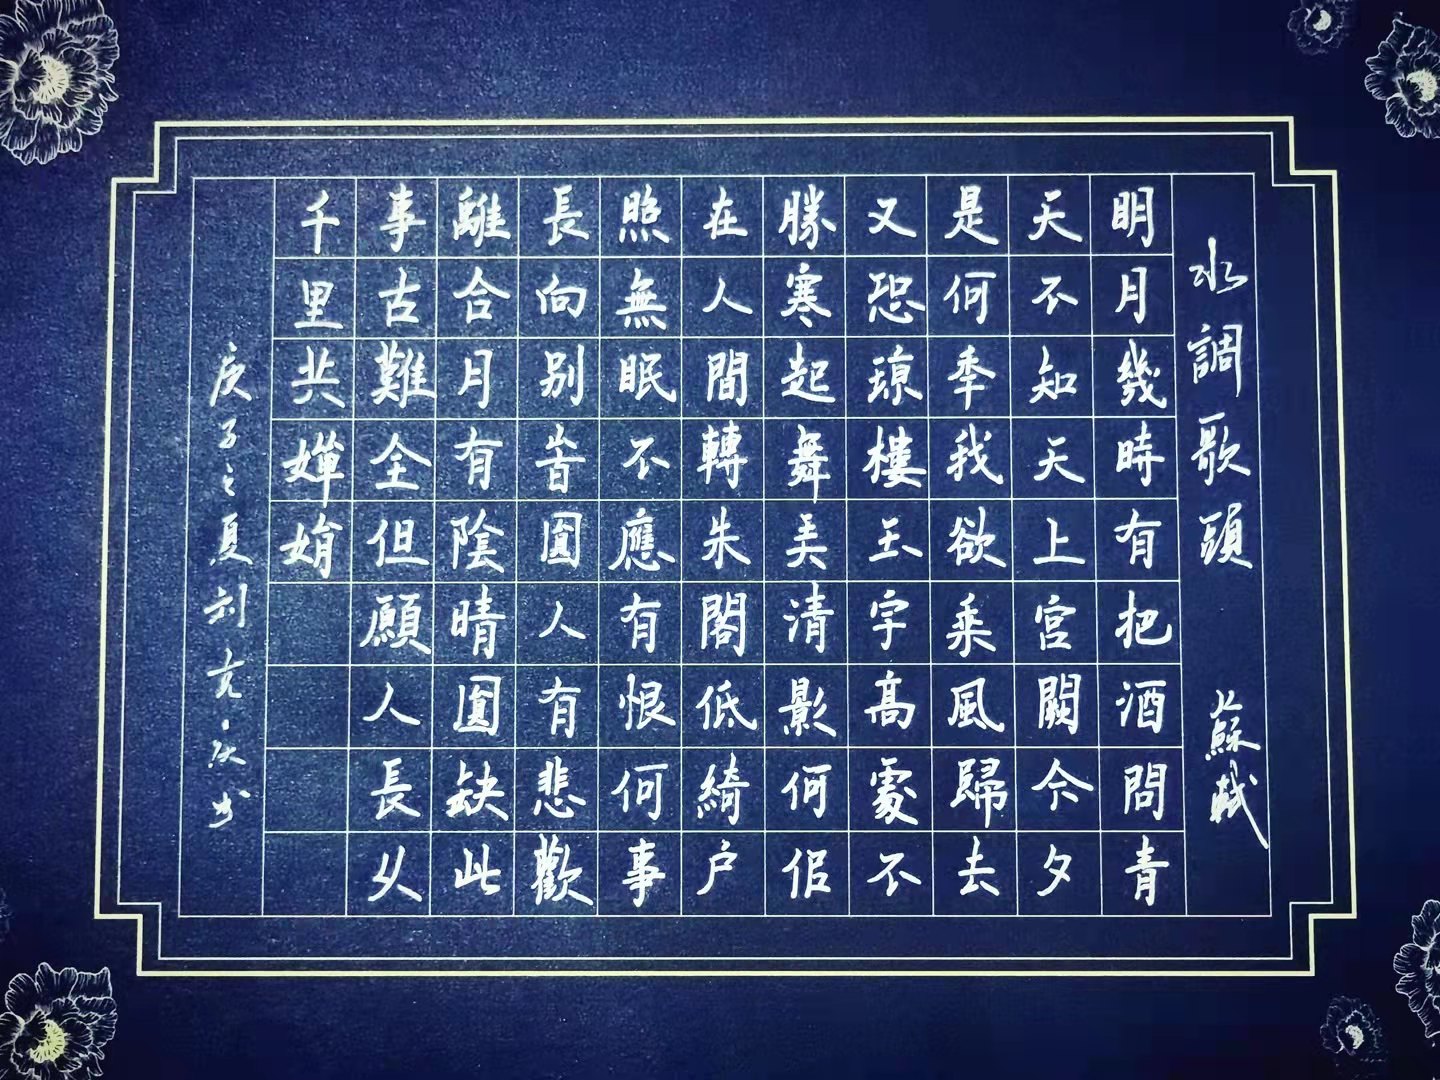 水調歌頭 蘇軾
明月幾時有把酒問青
天不知天上宮闕今夕
是何秊我欲乘風歸去
又恐瓊樓玉宇高處不
勝寒起舞弄清影何佀
在人間轉朱閣低綺户
照無眠不應有恨何事
長向别旹圓人有悲歡
離合月有陰晴圓缺此
事古難全但願人長久
千里共嬋娟
庚子之夏刘庆书